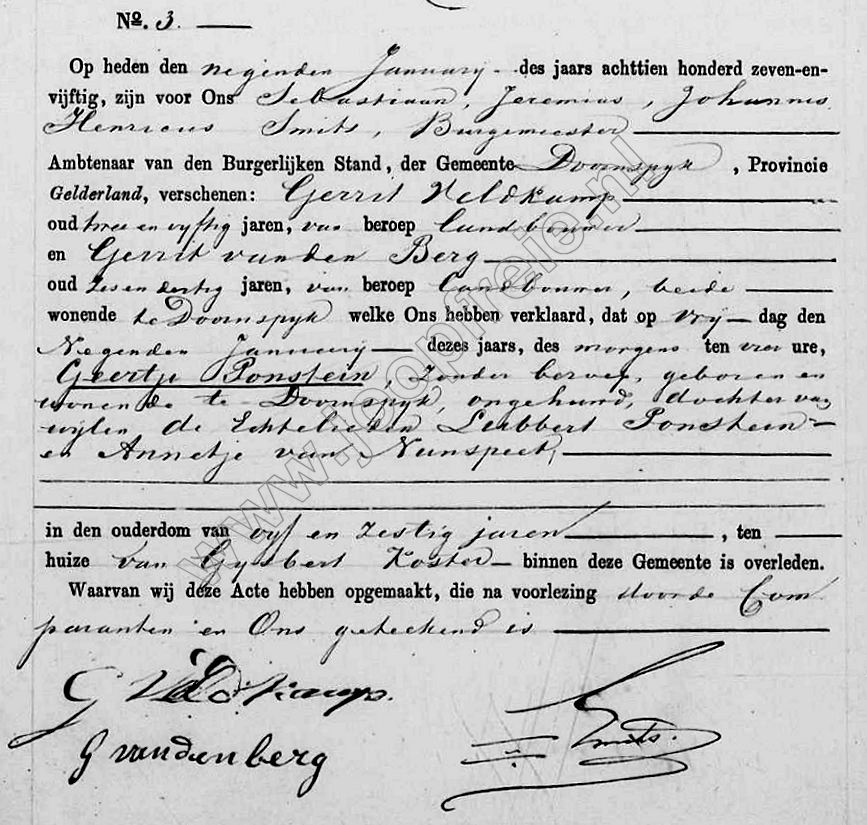 No. 3.
Op heden den negenden January des jaars achttien honderd zeven-en-
vijftig, zijn voor Ons Sebastiaan, Jeremias, Johannes
Henricus Smits, Burgemeester
Ambtenaar van den Burgerlijken Stand, der Gemeente Doornspyk, Provincie
Gelderland, verschenen: Gerrit Veldkamp
oud twee en vyftig jaren, van beroep landbouwer
en Gerrit van den Berg
oud zes en dertig jaren, van beroep landbouwer, beide
wonende te Doornspyk welke Ons hebben verklaard, dat op vry-dag den
Negenden January dezes jaars, des morgens ten vier ure,
Geertje Ponstein, zonder beroep, geboren en
wonende te Doornspyk, ongehuwd, dochter van
wylen de Echtelieden Lubbert Ponstein
en Annetje van Nunspeet,
in den ouderdom van vyf en zestig jaren, ten
huize van Gysbert Koster binnen deze Gemeente is overleden.
Waarvan wij deze Acte hebben opgemaakt, die na voorlezing door de Com
paranten en Ons geteekend is
G Veldkamp.
G vandenberg
Smits.
www.joopfreie.nl